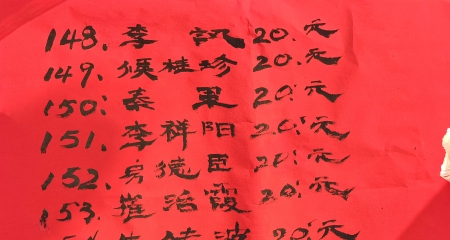 148. 李 訊 20.元
149. 侯桂珍 20.元
150. 秦 軍 20.元
151. 李祥阳 20.元
152. 房德臣 20.元
153. 崔治霞 20.元
20.元